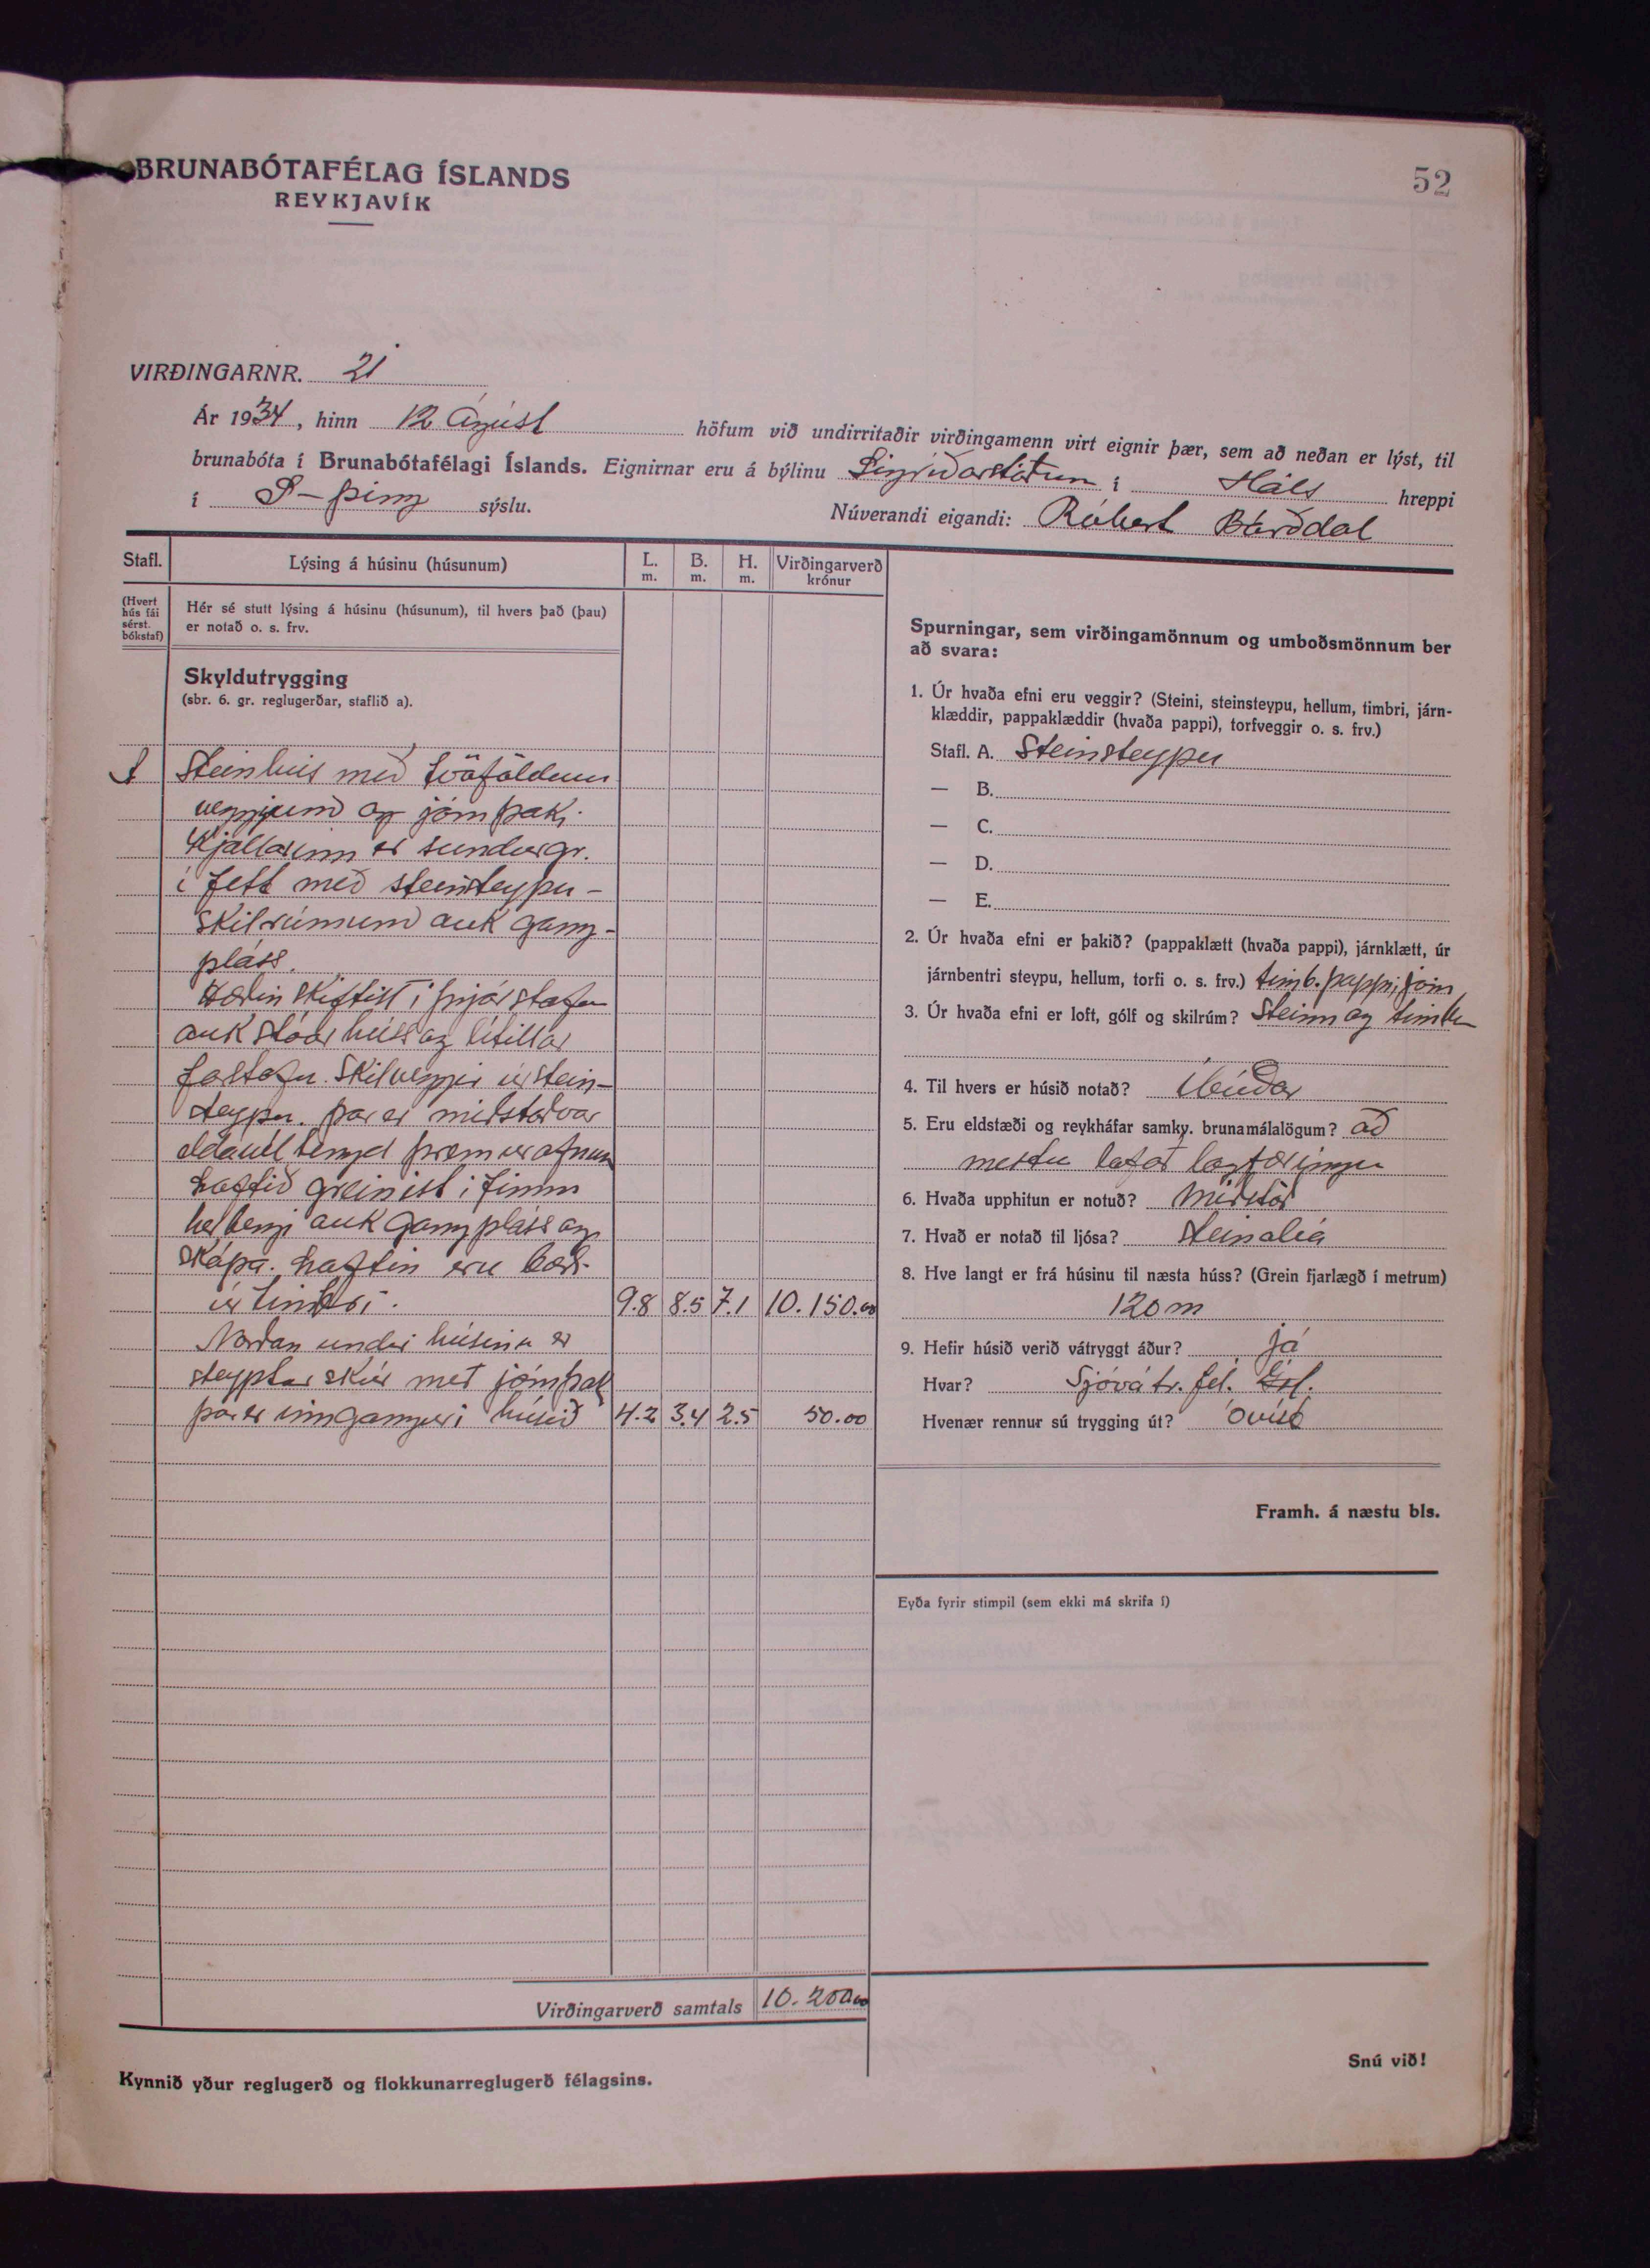 52
BRUNABÓTAFÉLAG ÍSLANDS
REYKJAVÍK
VIRÐINGARNR. 21
Ár 1934, hinn 12 Ágúst höfum við undirritaðir virðingamenn virt eignir þær, sem að neðan er lýst, til
brunabóta í Brunabótafélagi Íslands. Eignirnar eru á býlinu Sigríðarstöðum í Háls hreppi
í S-þing sýslu. Núverandi eigandi: Róbert Bárðdal
Stafl. Lýsing á húsinu (húsunum) L. m. B. m. H. m. Virðingarverð krónur
(Hvert hús fái sérst. bókstaf)
Hér sé stutt lýsing á húsinu (húsunum), til hvers það (þau)
er notað o. s. frv.
Skyldutrygging
(sbr. 6. gr. reglugerðar, staflið a).
A Steinhús með tvöföldum
veggjum og járnþaki.
Kjallarinn er sundurgr.
í fett með steinsteypu-
skilrúmum auk gang-
pláss.
Hæðin skiftist í þrjár stofur
auk stóar húss og lítillar
forstofu. Skilveggir úr stein-
steypu. Þar er miðstöðvar
eldavél tengd þrem ofnum
Loftið greinist í fimm
herbergi auk gangpláss og
skápa. Loftin eru
úr timbri. 9.8 8.5 7.1 10.150.00
Norðan undir húsinu er
steyptur skúr með járnþak
þar er inngangur í húsið 4.2 3.4 2.5 50.00
Virðingarverð samtals 10.200.00
Kynnið yður reglugerð og flokkunarreglugerð félagsins.
Spurningar, sem virðingamönnum og umboðsmönnum ber
að svara:
1. Úr hvaða efni eru veggir? (Steini, steinsteypu, hellum, timbri, járn-
klæddir, pappaklæddir (hvaða pappi), torfveggir o. s. frv.)
Stafl. A. Steinsteypu
— B.
— C.
— D.
— E.
2. Úr hvaða efni er þakið? (pappaklætt (hvaða pappi), járnklætt, úr
járnbentri steypu, hellum, torfi o. s. frv.) timb. pappi, járn
3. Úr hvaða efni er loft, gólf og skilrúm? Steinn og timbur
4. Til hvers er húsið notað? Íbúðar
5. Eru eldstæði og reykháfar samkv. brunamálalögum? að
mestu
6. Hvaða upphitun er notuð? Miðstöð
7. Hvað er notað til ljósa? Steinolía
8. Hve langt er frá húsinu til næsta húss? (Grein fjarlægð í metrum)
120 m
9. Hefir húsið verið vátryggt áður? já
Hvar? Sjóvátr. fél. Ísl.
Hvenær rennur sú trygging út? óvíst
Framh. á næstu bls.
Eyða fyrir stimpil (sem ekki má skrifa í)
Snú við!